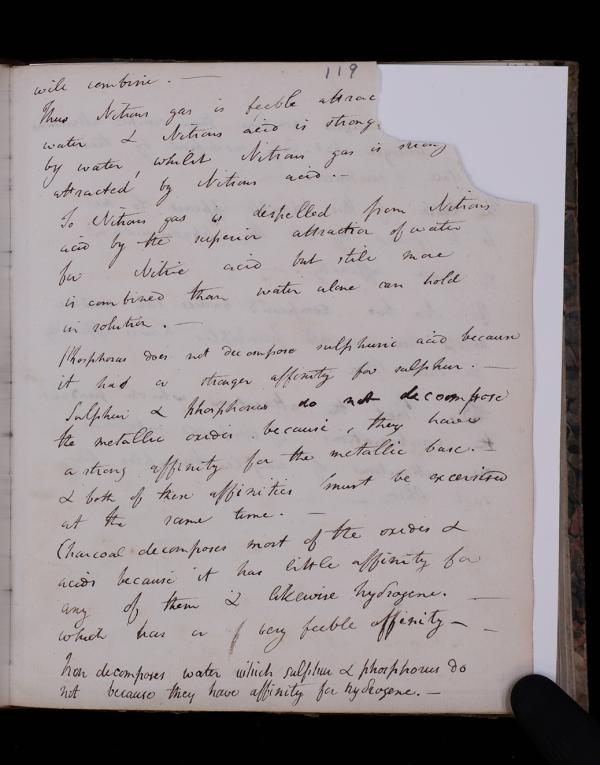 119
will combine. —
Thus Nitrous gas is feeble attrac
water & Nitrous acid is strong
by water, whilst Nitrous gas is strong
attracted by Nitrous acid. —
So Nitrous gas is dispelled from Nitrous
acid by the superior attraction of water
for Nitric acid but still more
is combined than water alone can hold
in solution. —
Phosphorus does not decompose sulphuric acid because
it had a stronger affinity for sulphur. —
Sulphur & phosphorus do not decompose
the metallic oxides because, they have
a strong affinity for the metallic base. —
& both of these affinities must be excersised
at the same time. —
Charcoal decomposes most of the oxides &
acids because it has little affinity for
any of them & likewise hydrogene. —
which has a very feeble affinity — —
Iron decomposes water which sulphur & phosphorus do
not because they have affinity for hydrogene. —